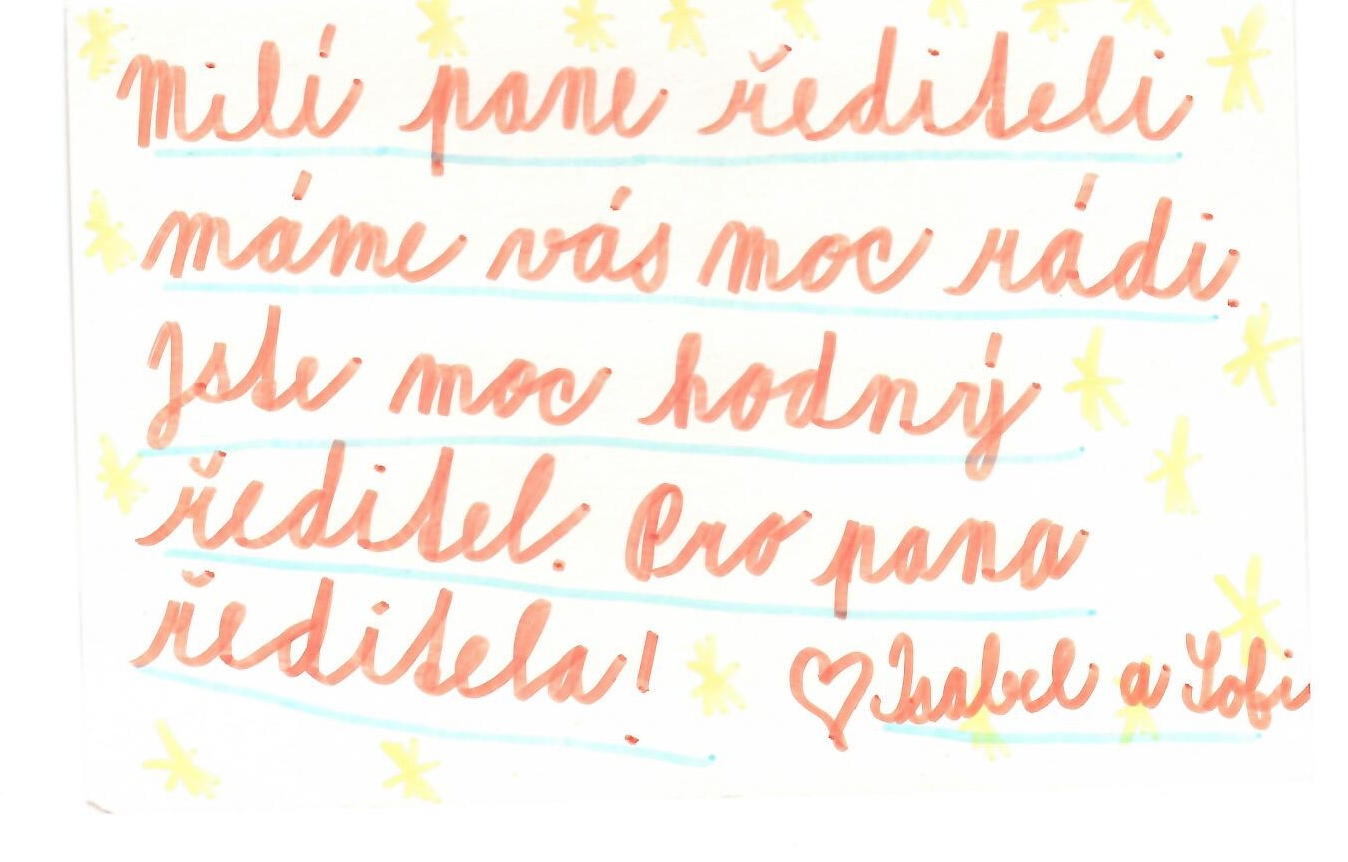 Milí pane řediteli
máme vás moc rádi.
Jste moc hodný
ředitel. Pro pana
ředitela!
♡ Isabel a Sofi